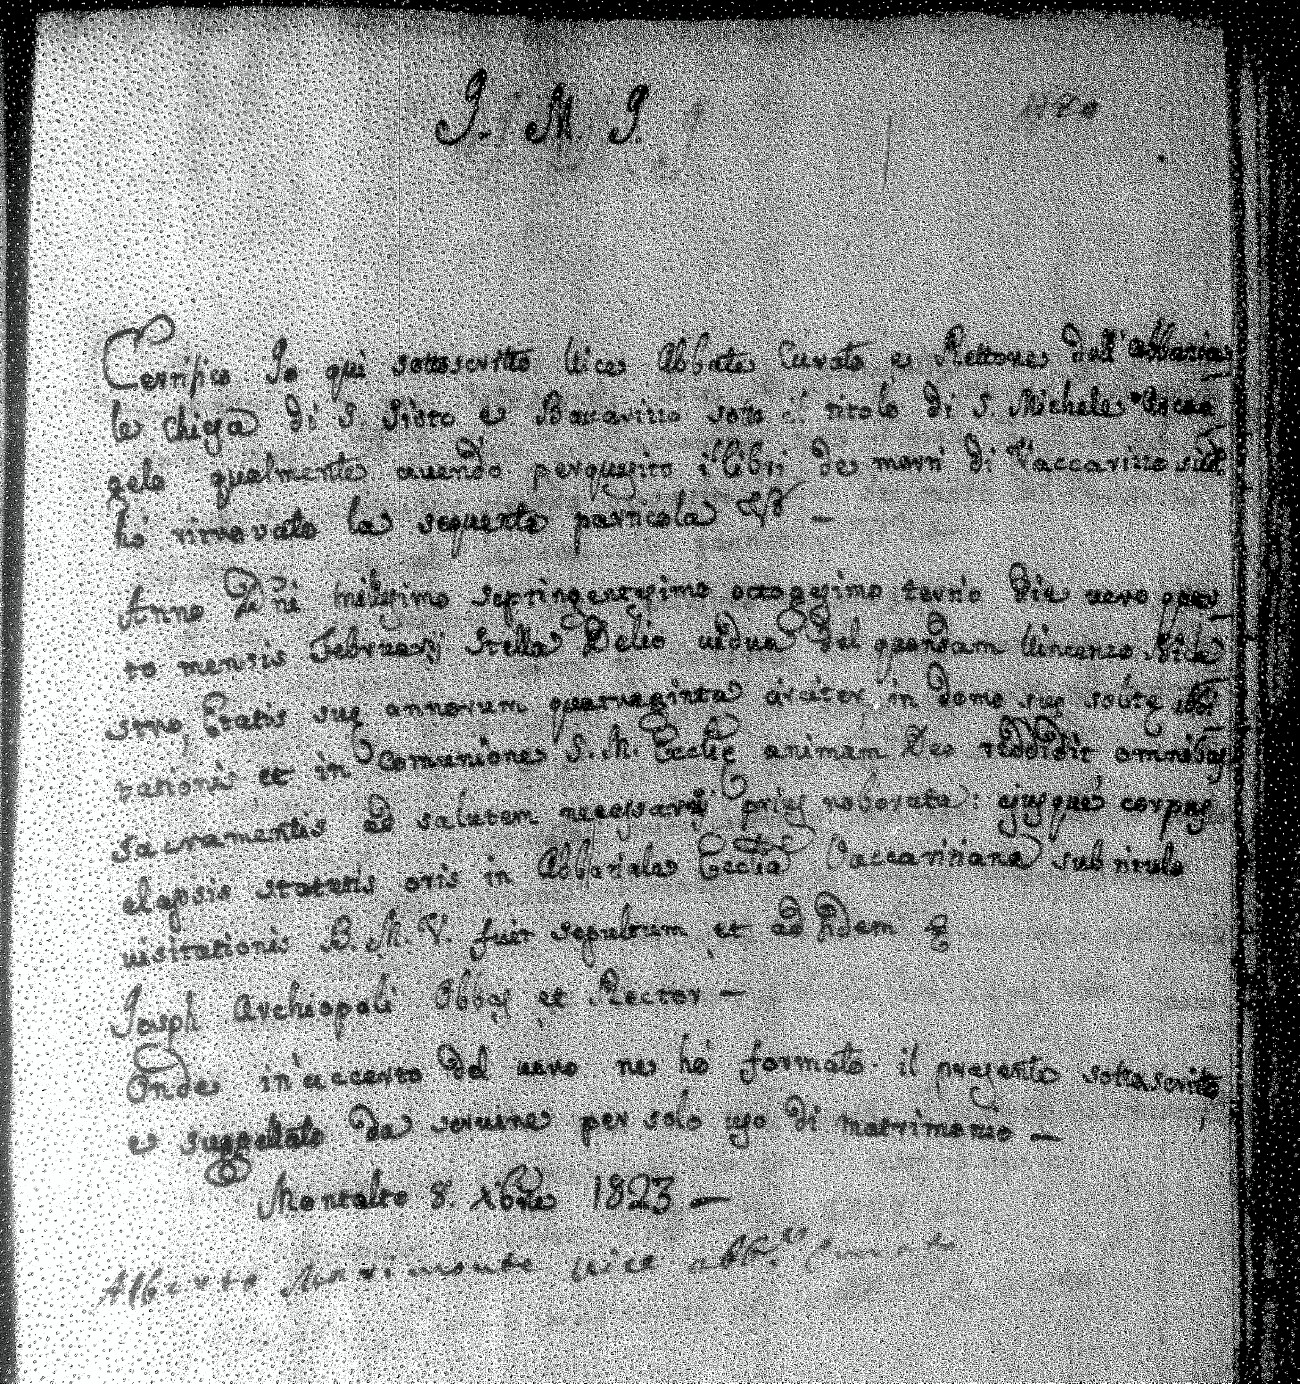 J. M. J.
Certifico Io quì sottoscritto Vice Abbate Curato e Rettore dell'Abbazia
le Chiesa di S. Sisto e Vaccarizzo sotto il titolo di S. Michele Arcan
gelo qualmente avendo perquisito i libri de morti di Vaccarizzo sud.
hò ritrovato la seguente particola
Anno Dñi millesimo septingentesimo octogesimo tertio die vero quar
to mensis Februarij Stella Delio vidua del quondam Vincenzo
Etatis suę annorum quatraginta circiter in domo sua
rationis et in Comunione S. M. Ecclię animam Deo reddidit omnibus
sacramentis ad salutem necessarijs prius roborata: ejusque corpus
elapsis statutis oris in Abbatiale Ecclia Vaccaritiana sub titulo
visitationis B. M. V. fuit sepultum et ad fidem
Joseph Archiopoli Abbas et Rector —
Onde in accerto del vero ne hò formato il presente sottoscritto
e suggellato da servire per solo uso di matrimonio —
Montalto 8. Xbre 1823 —
Alberto Vice